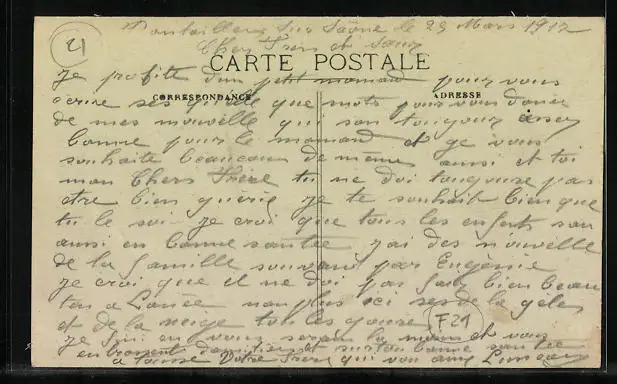 Pontailler sur Saône le 29 Mars 1912
Chers Frere et Soeur
CARTE POSTALE
CORRESPONDANCE
ADRESSE
21
Je profite d'un petit moment pour vous
écrire ses quelque mots pour vous doner
de mes nouvelle qui son toujour assez
bonne pour le moment et je vous
souhaite beaucoup de meme aussi et toi
mon Chers Frère tu ne doi toujours pas
etre bien guérie je te souhait bien que
tu le soi je croi que tous les enfants son
aussi en bonne santée j'ai des nouvelle
de la famille souvent par Eugénie
je croi que il ne doi pas fair bien beau
ten a non plus ici ses de la gelée
et de la neige tous les jours
F21
je fini en vous seran la main et vous
en sur ton bonne santée
a tous Votre Frere qui vou aime